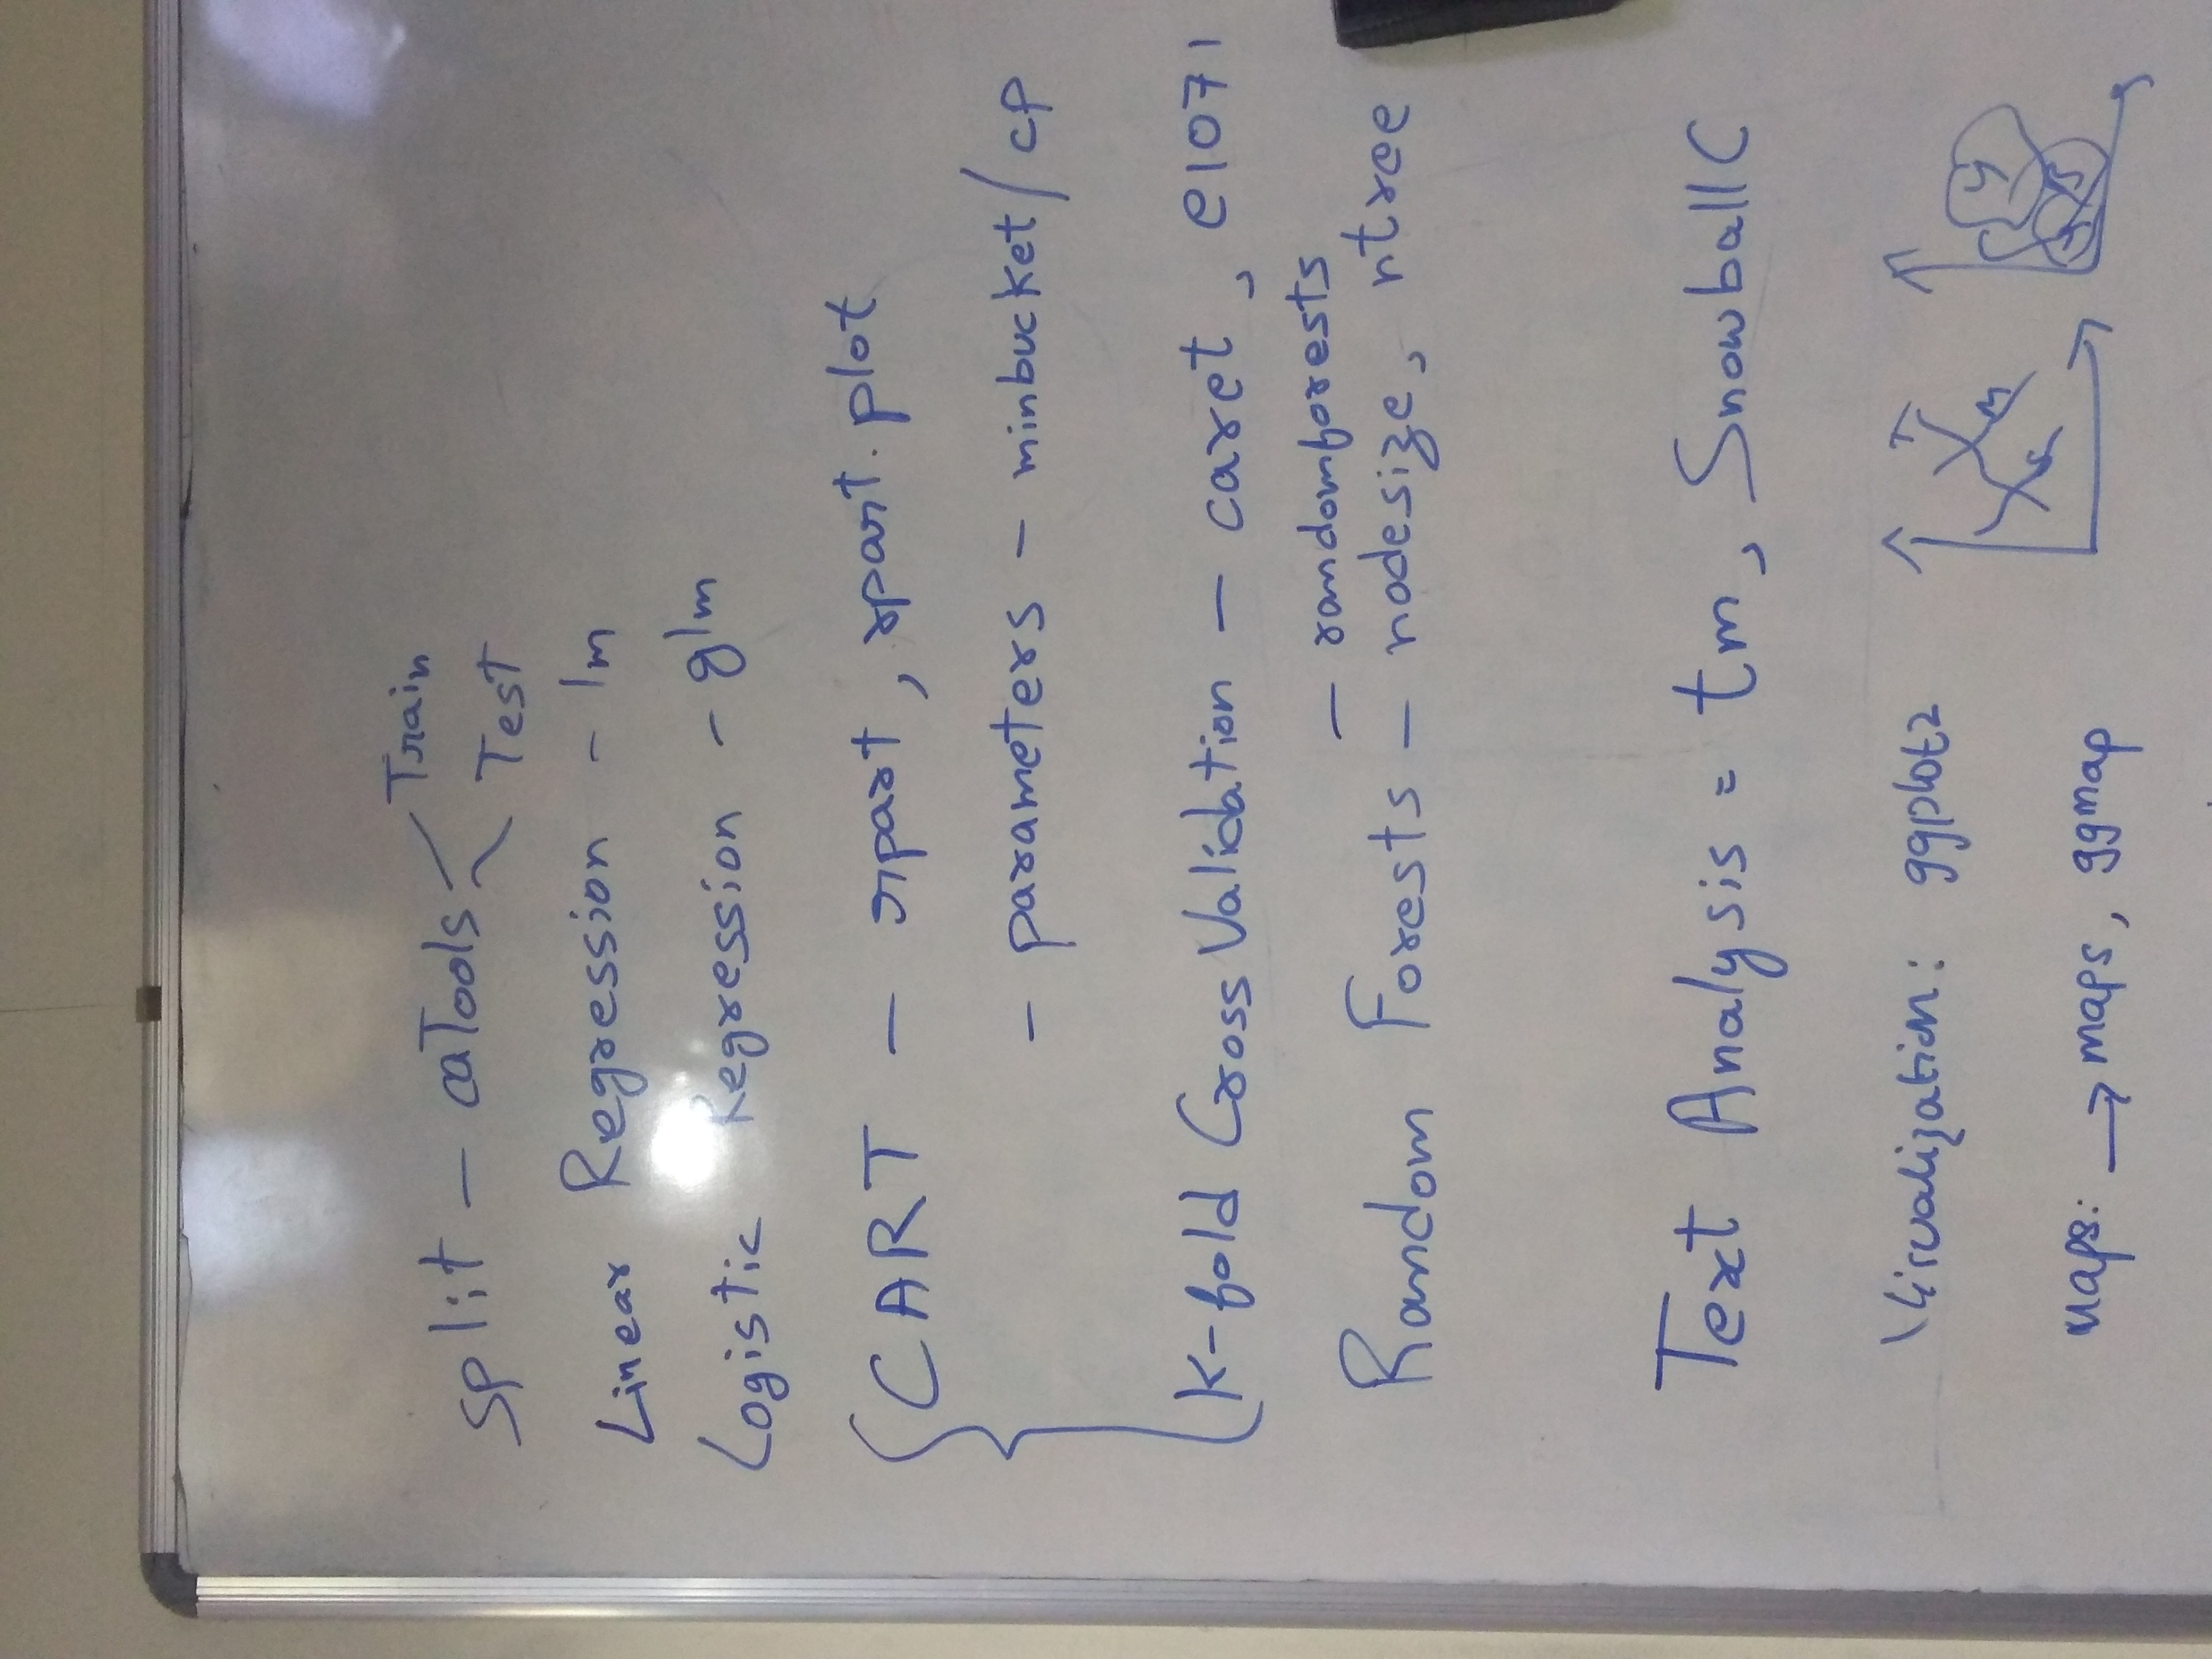 split - caTools Train
Test
Linear Regression - lm
Logistic Regression - glm
CART - rpart, rpart.plot
- parameters - minbucket/cp
K-fold Cross Validation - caret, e1071
- randomforests
Random Forests - nodesize, ntree
Text Analysis = tm, SnowballC
Visualization: ggplot2
Maps: → maps, ggmap